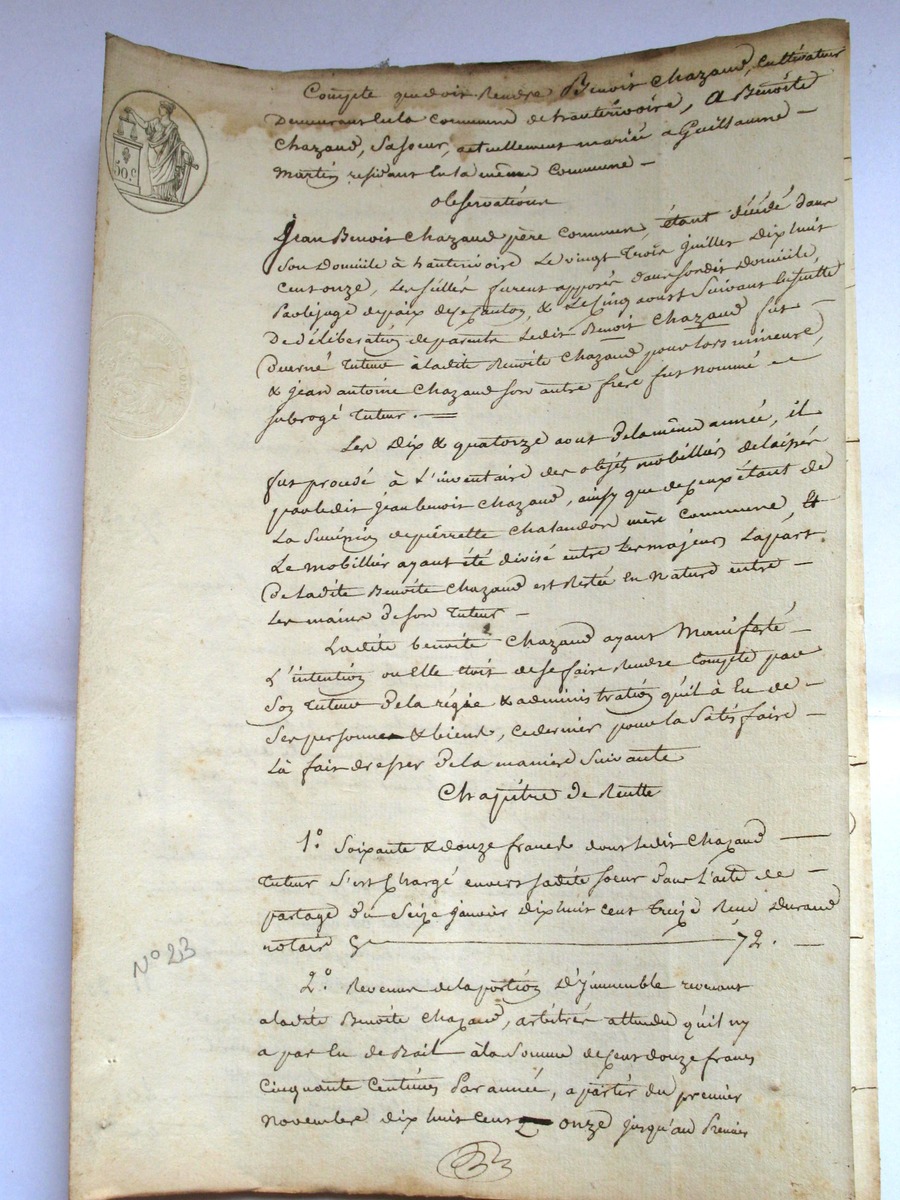 Compte que doit rendre Benoit Chazaud, Cultivateur
Demeurant en la commune de hauterivoire, A Benoite
Chazaud, sa soeur, actuellement mariée a Guillaume
martin residant en la même commune
observations
Jean Benoit Chazaud père commun, étant décédé dans
son Domicile à hauterivoire Le vingt trois juillet Dix huit
cent onze, les scellés furent apposés dans son dit Domicile,
par le juge de paix de ce canton, & Le cinq aoust suivant ensuitte
De délibération de parents Ledit Benoit Chazaud fut
Decerné tuteur à ladite Benoite Chazaud pour lors mineure,
& jean antoine Chazaud son autre frère fut nommé
subrogé tuteur.
Les Dix & quatorze aout de la même année, il
fut procédé à L'inventaire des objets mobilliers delaissés
par ledit jean benoit Chazaud, ainsy que de ceux étant de
La succession de pierrette chalandon mère commune, &
Le mobillier ayant été divisé entre les majeurs La part
De Ladite Benoite Chazaud est restée en nature entre
les mains de son tuteur
Ladite benoite Chazaud ayant Manifesté
L'intention ou elle etoit de se faire rendre Compte par
son tuteur de la régie & administration qu'il à eu de
ses personne & biens, ce dernier pour la satisfaire
Là fait dresser de la maniere suivante
Chapitre de Recette
1.º Soixante & douze francs dont ledit Chazaud
tuteur s'est chargé envers sadite soeur dans l'acte de
partage du seize janvier dix huit cent treize Reçu Durand
notaire Cy 72.
2.º Revenus de la portion D'immeuble revenant
a ladite Benoite Chazaud, arbitrés attendu qu'il ny
a pas eu de Bail à la somme de cent douze francs
cinquante centimes Par année, a partir du premier
novembre dix huit cent onze jusqu'au Premier
50c.
Nº 23